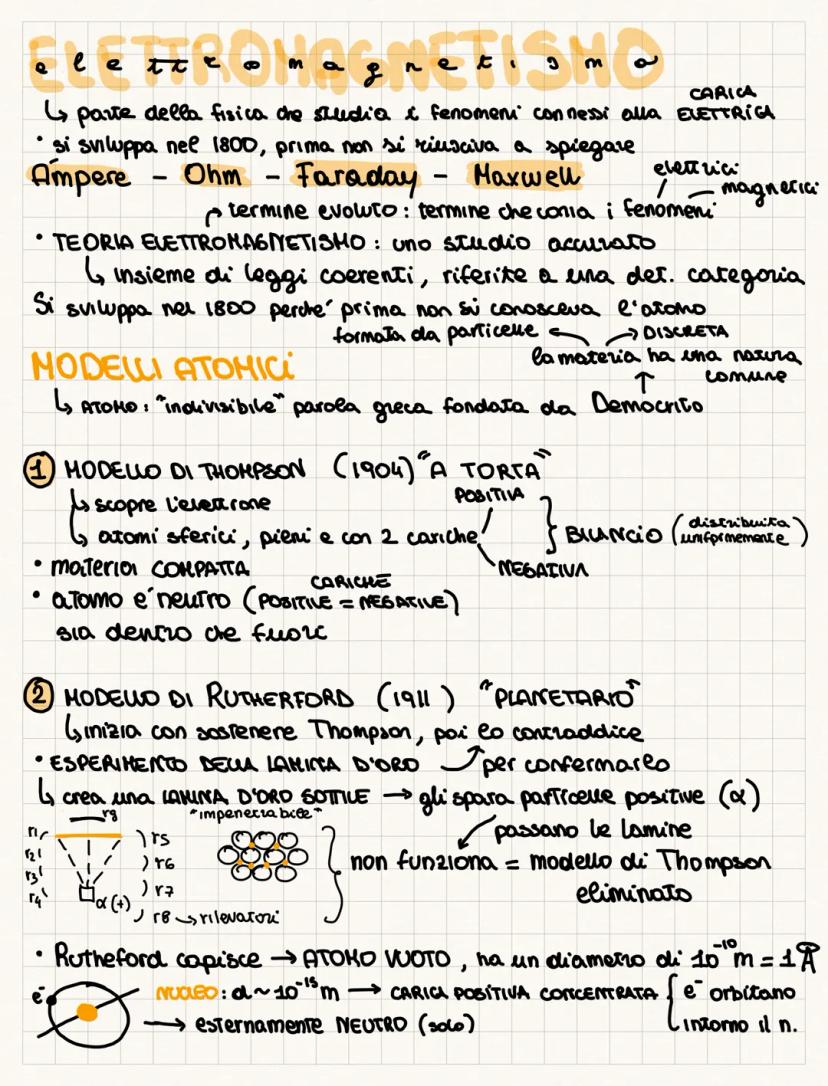 ELETTROMAGNETISMO
elettromagnetismo
↳ parte della fisica che studia i fenomeni connessi alla CARICA ELETTRICA
• si sviluppa nel 1800, prima non si riusciva a spiegare
Ampere - Ohm - Faraday - Maxwell
elettrici
magnetici
termine evoluto: termine che conia i fenomeni
• TEORIA ELETTROMAGNETISMO: uno studio accurato
↳ insieme di leggi coerenti, riferite a una det. categoria
Si sviluppa nel 1800 perché prima non si conosceva l'atomo
formata da particelle ← → DISCRETA
MODELLI ATOMICI
la materia ha una natura comune
↑
↳ ATOMO: "indivisibile" parola greca fondata da Democrito
1 MODELLO DI THOMPSON (1904) "A TORTA"
↳ scopre l'elettrone
POSITIVA
↳ atomi sferici, pieni e con 2 cariche } BILANCIO (distribuita uniformemente)
NEGATIVA
• materia COMPATTA
• atomo e' neutro (CARICHE POSITIVE = NEGATIVE)
sia dentro che fuori
2 MODELLO DI RUTHERFORD (1911) "PLANETARIO"
↳ inizia con sostenere Thompson, poi lo contraddice
• ESPERIMENTO DELLA LAMINA D'ORO per confermarlo
↳ crea una LAMINA D'ORO SOTTILE → gli spara particelle positive (α)
r9
"impenetrabile"
passano le lamine
r1
r2
r3
r4
r5
r6
r7
r8 → rilevatori
α(+)
non funziona = modello di Thompson
eliminato
• Rutheford capisce → ATOMO VUOTO, ha un diametro di 10⁻¹⁰ m = 1 Å
e⁻
NUCLEO: d ~ 10⁻¹⁵ m → CARICA POSITIVA CONCENTRATA { e⁻ orbitano
intorno il n.
→ esternamente NEUTRO (solo)